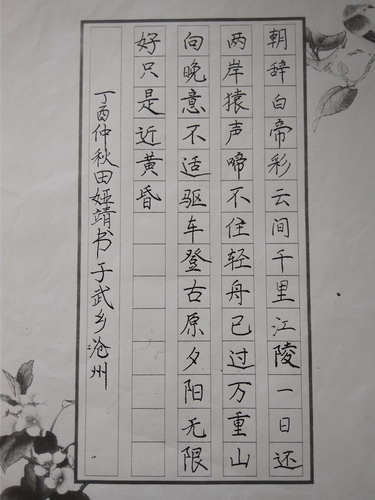 朝辞白帝彩云间千里江陵一日还
两岸猿声啼不住轻舟已过万重山
向晚意不适驱车登古原夕阳无限
好只是近黄昏
丁酉仲秋田姬靖书于武乡沧州